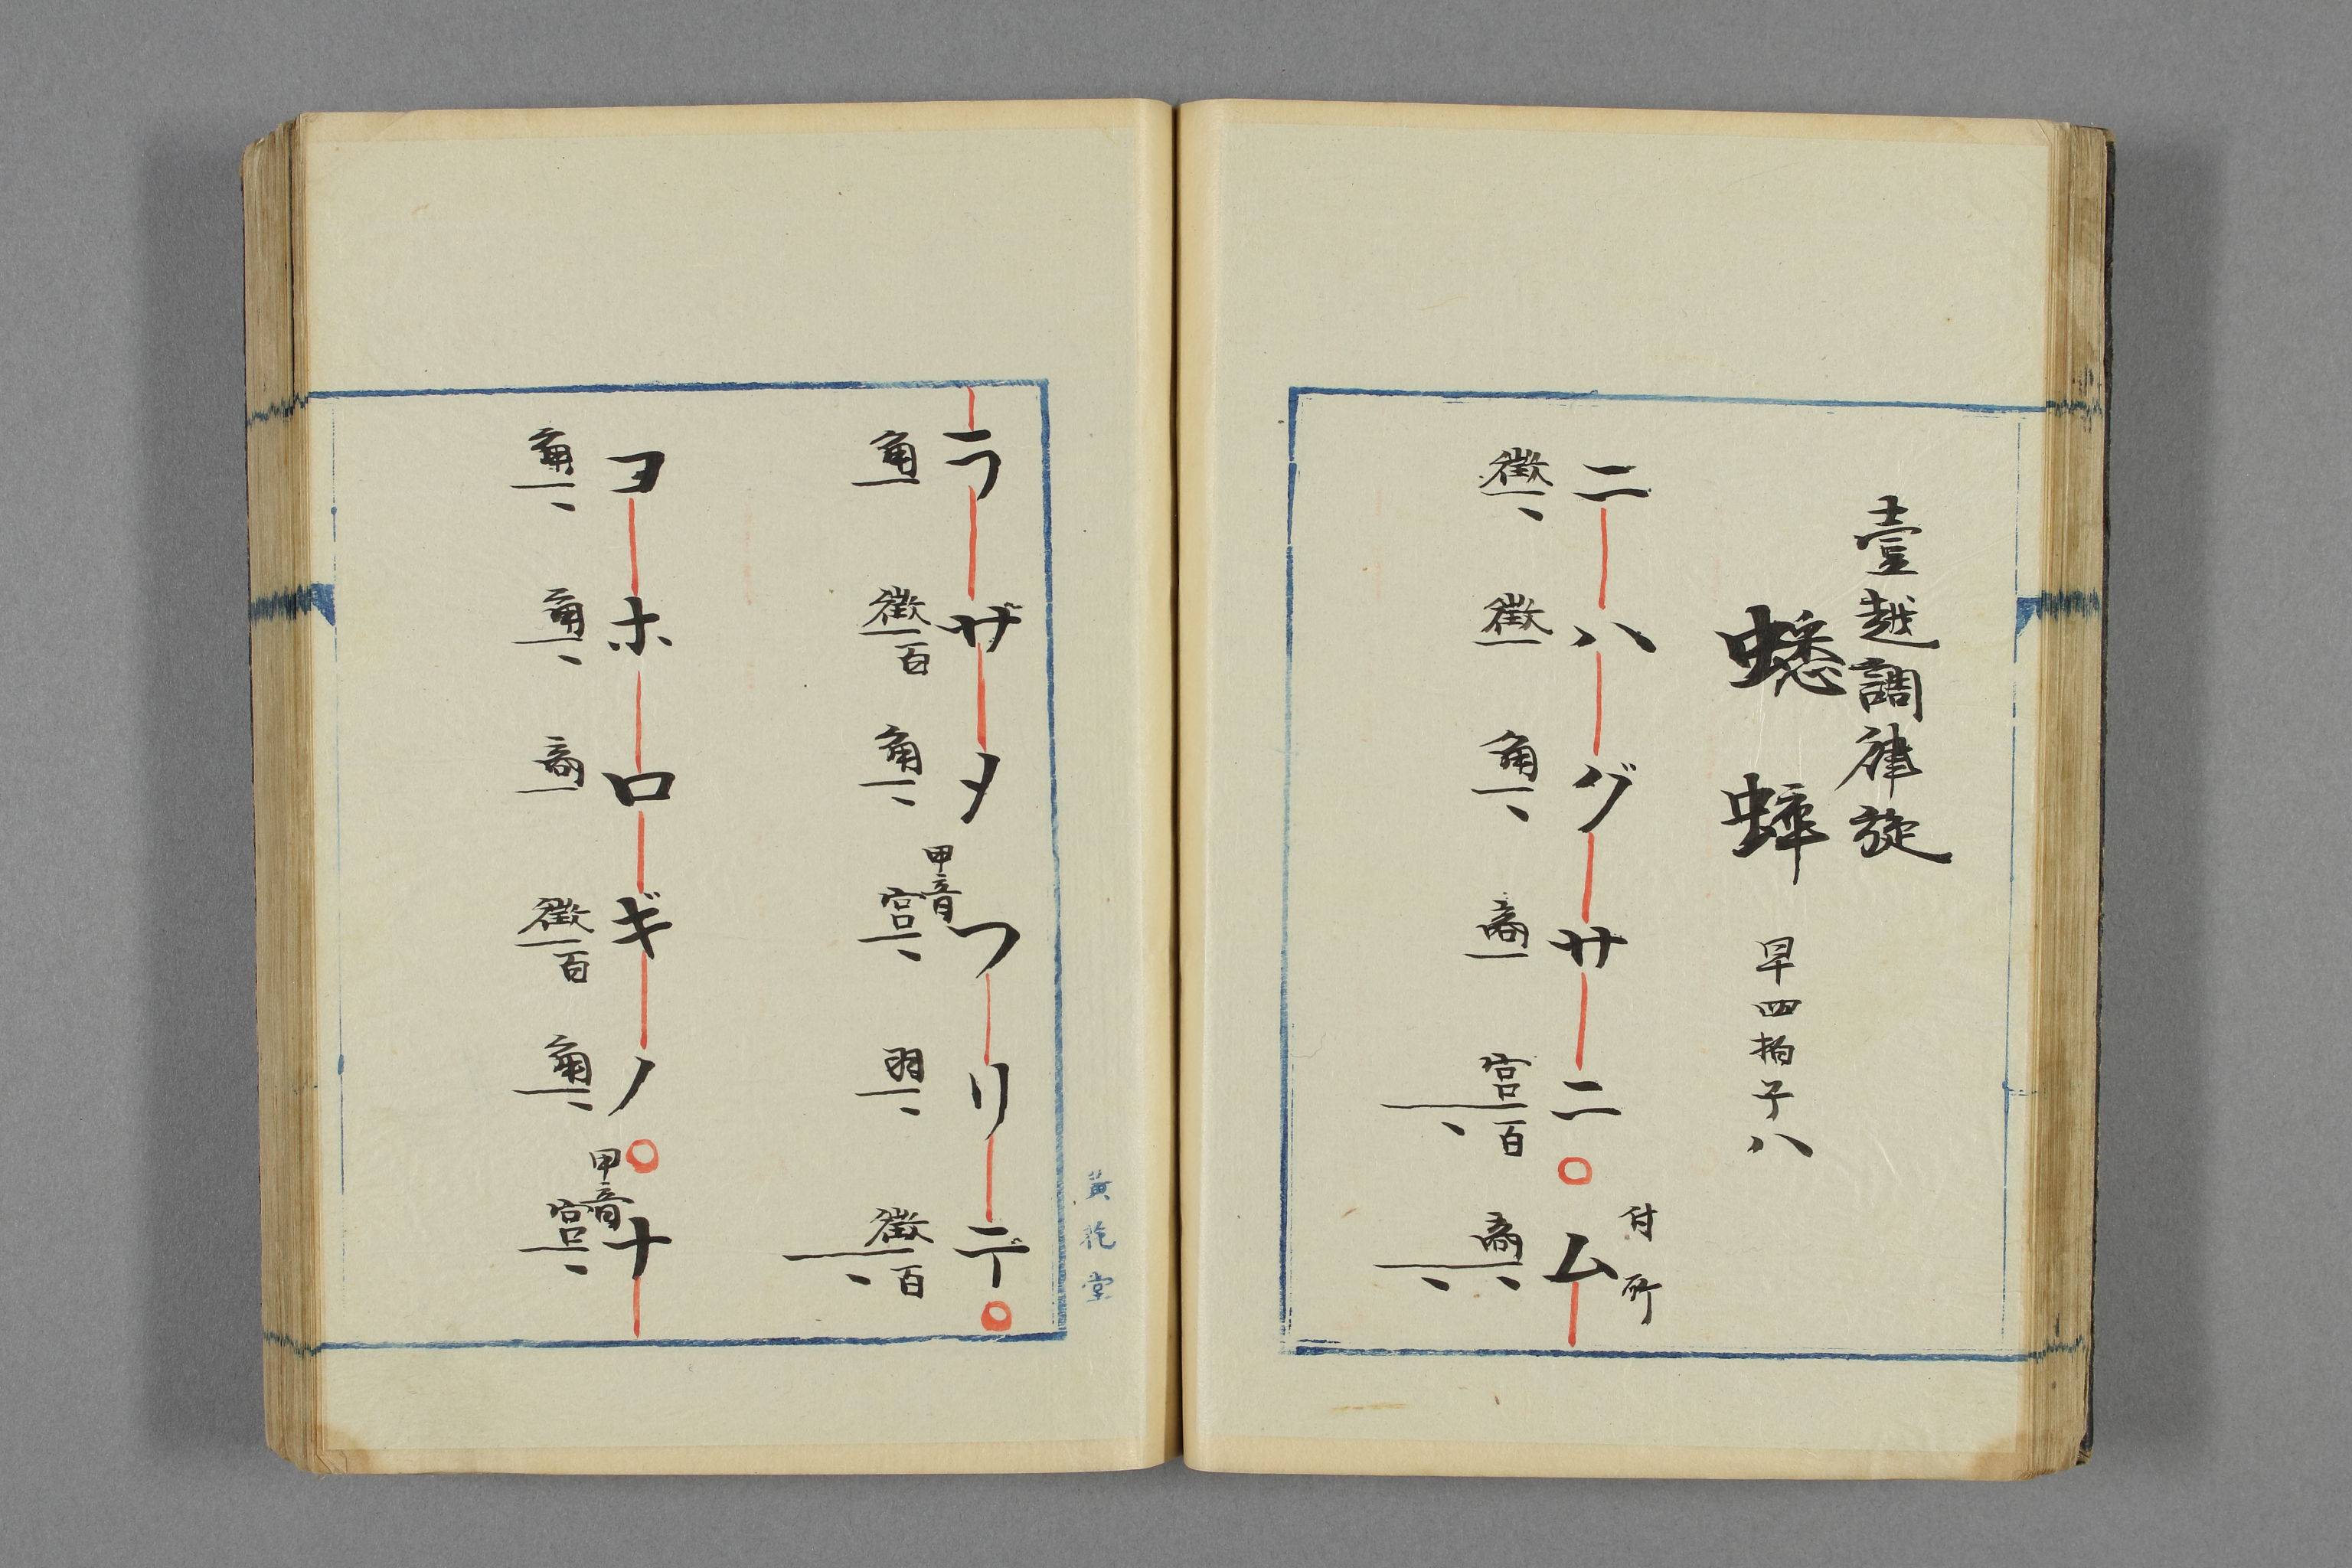 壹越調律旋
蟋蟀 早四拍子八
ニハグサニ○ム
付所
徴徴角商宮百商
ラザタワリデ○
甲音
角徴百角宮羽徴百
ヨホロギノ○ナ
甲音
角角商徴百角宮